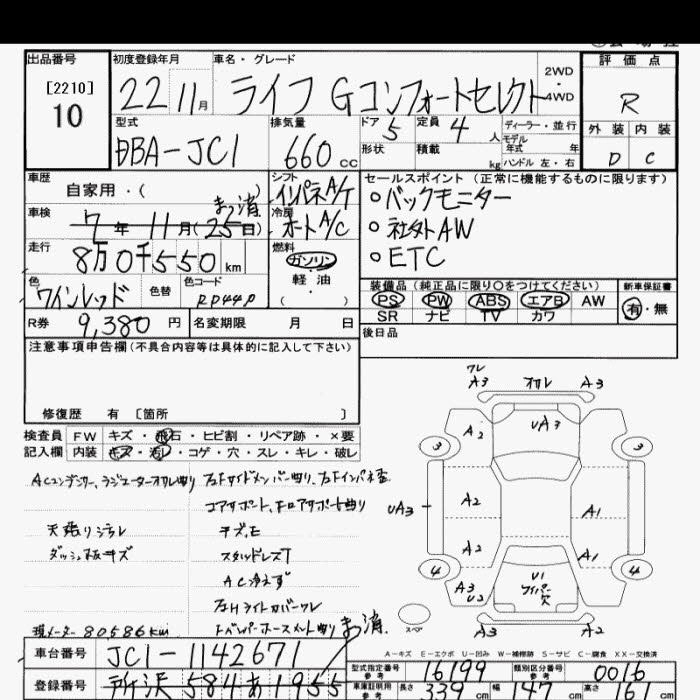 出品番号
[2210]
10
初度登録年月
22 11月
車名・グレード
ライフ Gコンフォートセレクト
2WD
・
4WD
評価点
R
外装 内装
D C
型式
DBA-JC1
排気量
660cc
ドア 5
定員 4人
形状
積載 kg
ディーラー・並行
モデル
年式 年
ハンドル 左・右
車歴
自家用・( )
シフト
インパネA/T
車検
7年11月(25日)
まっ消
冷房
オートA/C
走行
8万0千550km
燃料
ガソリン
軽油
( )
色
ワインレッド
色替
色コード
RP44P
セールスポイント (正常に機能するものに限ります)
・バックモニター
・社外AW
・ETC
装備品 (純正品に限り〇をつけてください)
PS PW ABS エアB AW
SR ナビ TV カワ
新車保証書
有・無
R券 9,380円
名変期限 月 日
後日品
注意事項申告欄(不具合内容等は具体的に記入して下さい)
修復歴 有 [箇所 ]
検査員 FW キズ・飛石・ヒビ割・リペア跡・×要
記入欄 内装 キズ・汚レ・コゲ・穴・スレ・キレ・破レ
ACコンデンサー、ラジエーターオサレ曲り
コアサポート、
天張りシミ
ダッシュ板キズ
スタッドレスT
AC冷えず
左Hライトカバーワレ
現メーター 80586km
まっ消
ワレ
A3 オサレ A3
UA3
A2
3 3
UA3
A2 A1
A2 A1
4 4
A3
U2
U1
ワイパー欠
スペア
A3 A2
A-キズ E-エクボ U-凹み W-補修跡 S-サビ C-腐食 XX-交換済
車台番号
JC1-1142671
登録番号
所沢 584 あ 1955
型式指定番号
参考
16199
類別区分番号
参考
0016
車庫証明用
参考
長さ 339cm
幅 147cm
高さ 161cm